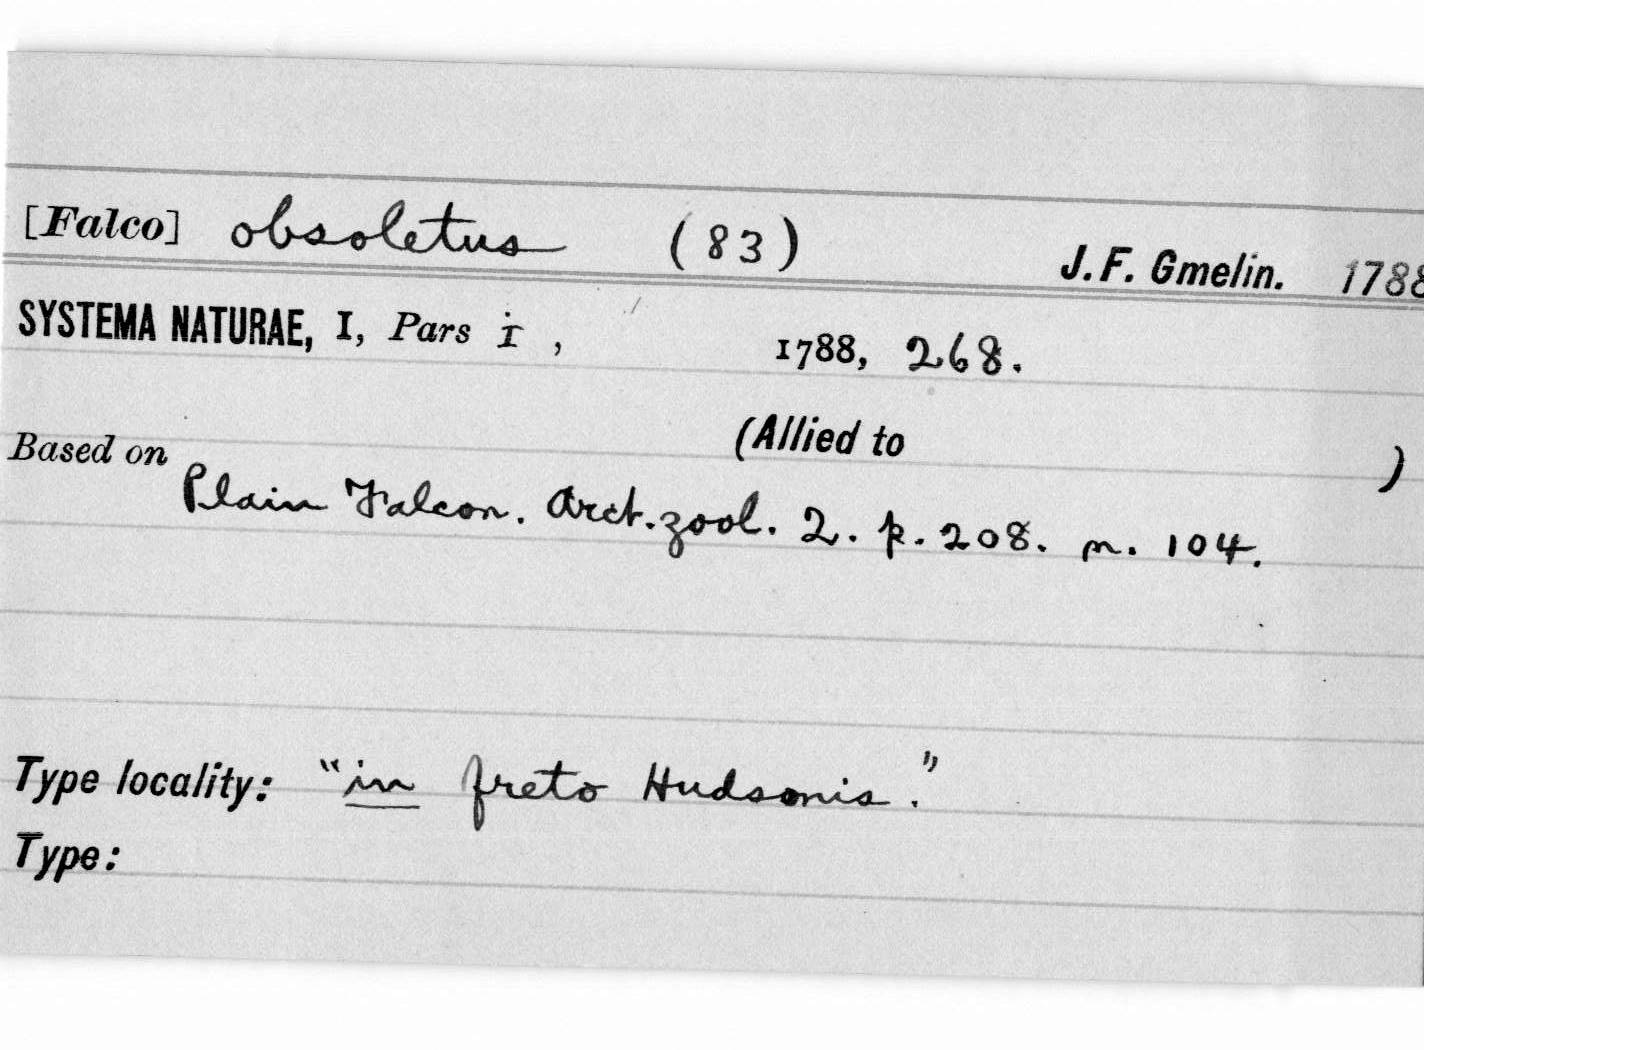 [Falco] obsoletus (83) J. F. Gmelin. 1788
SYSTEMA NATURAE, I, Pars i, 1788, 268.
(Allied to )
Based on
Plain Falcon. Arct. zool. 2. p. 208. n. 104.
Type locality: "in freto Hudsonis."
Type: